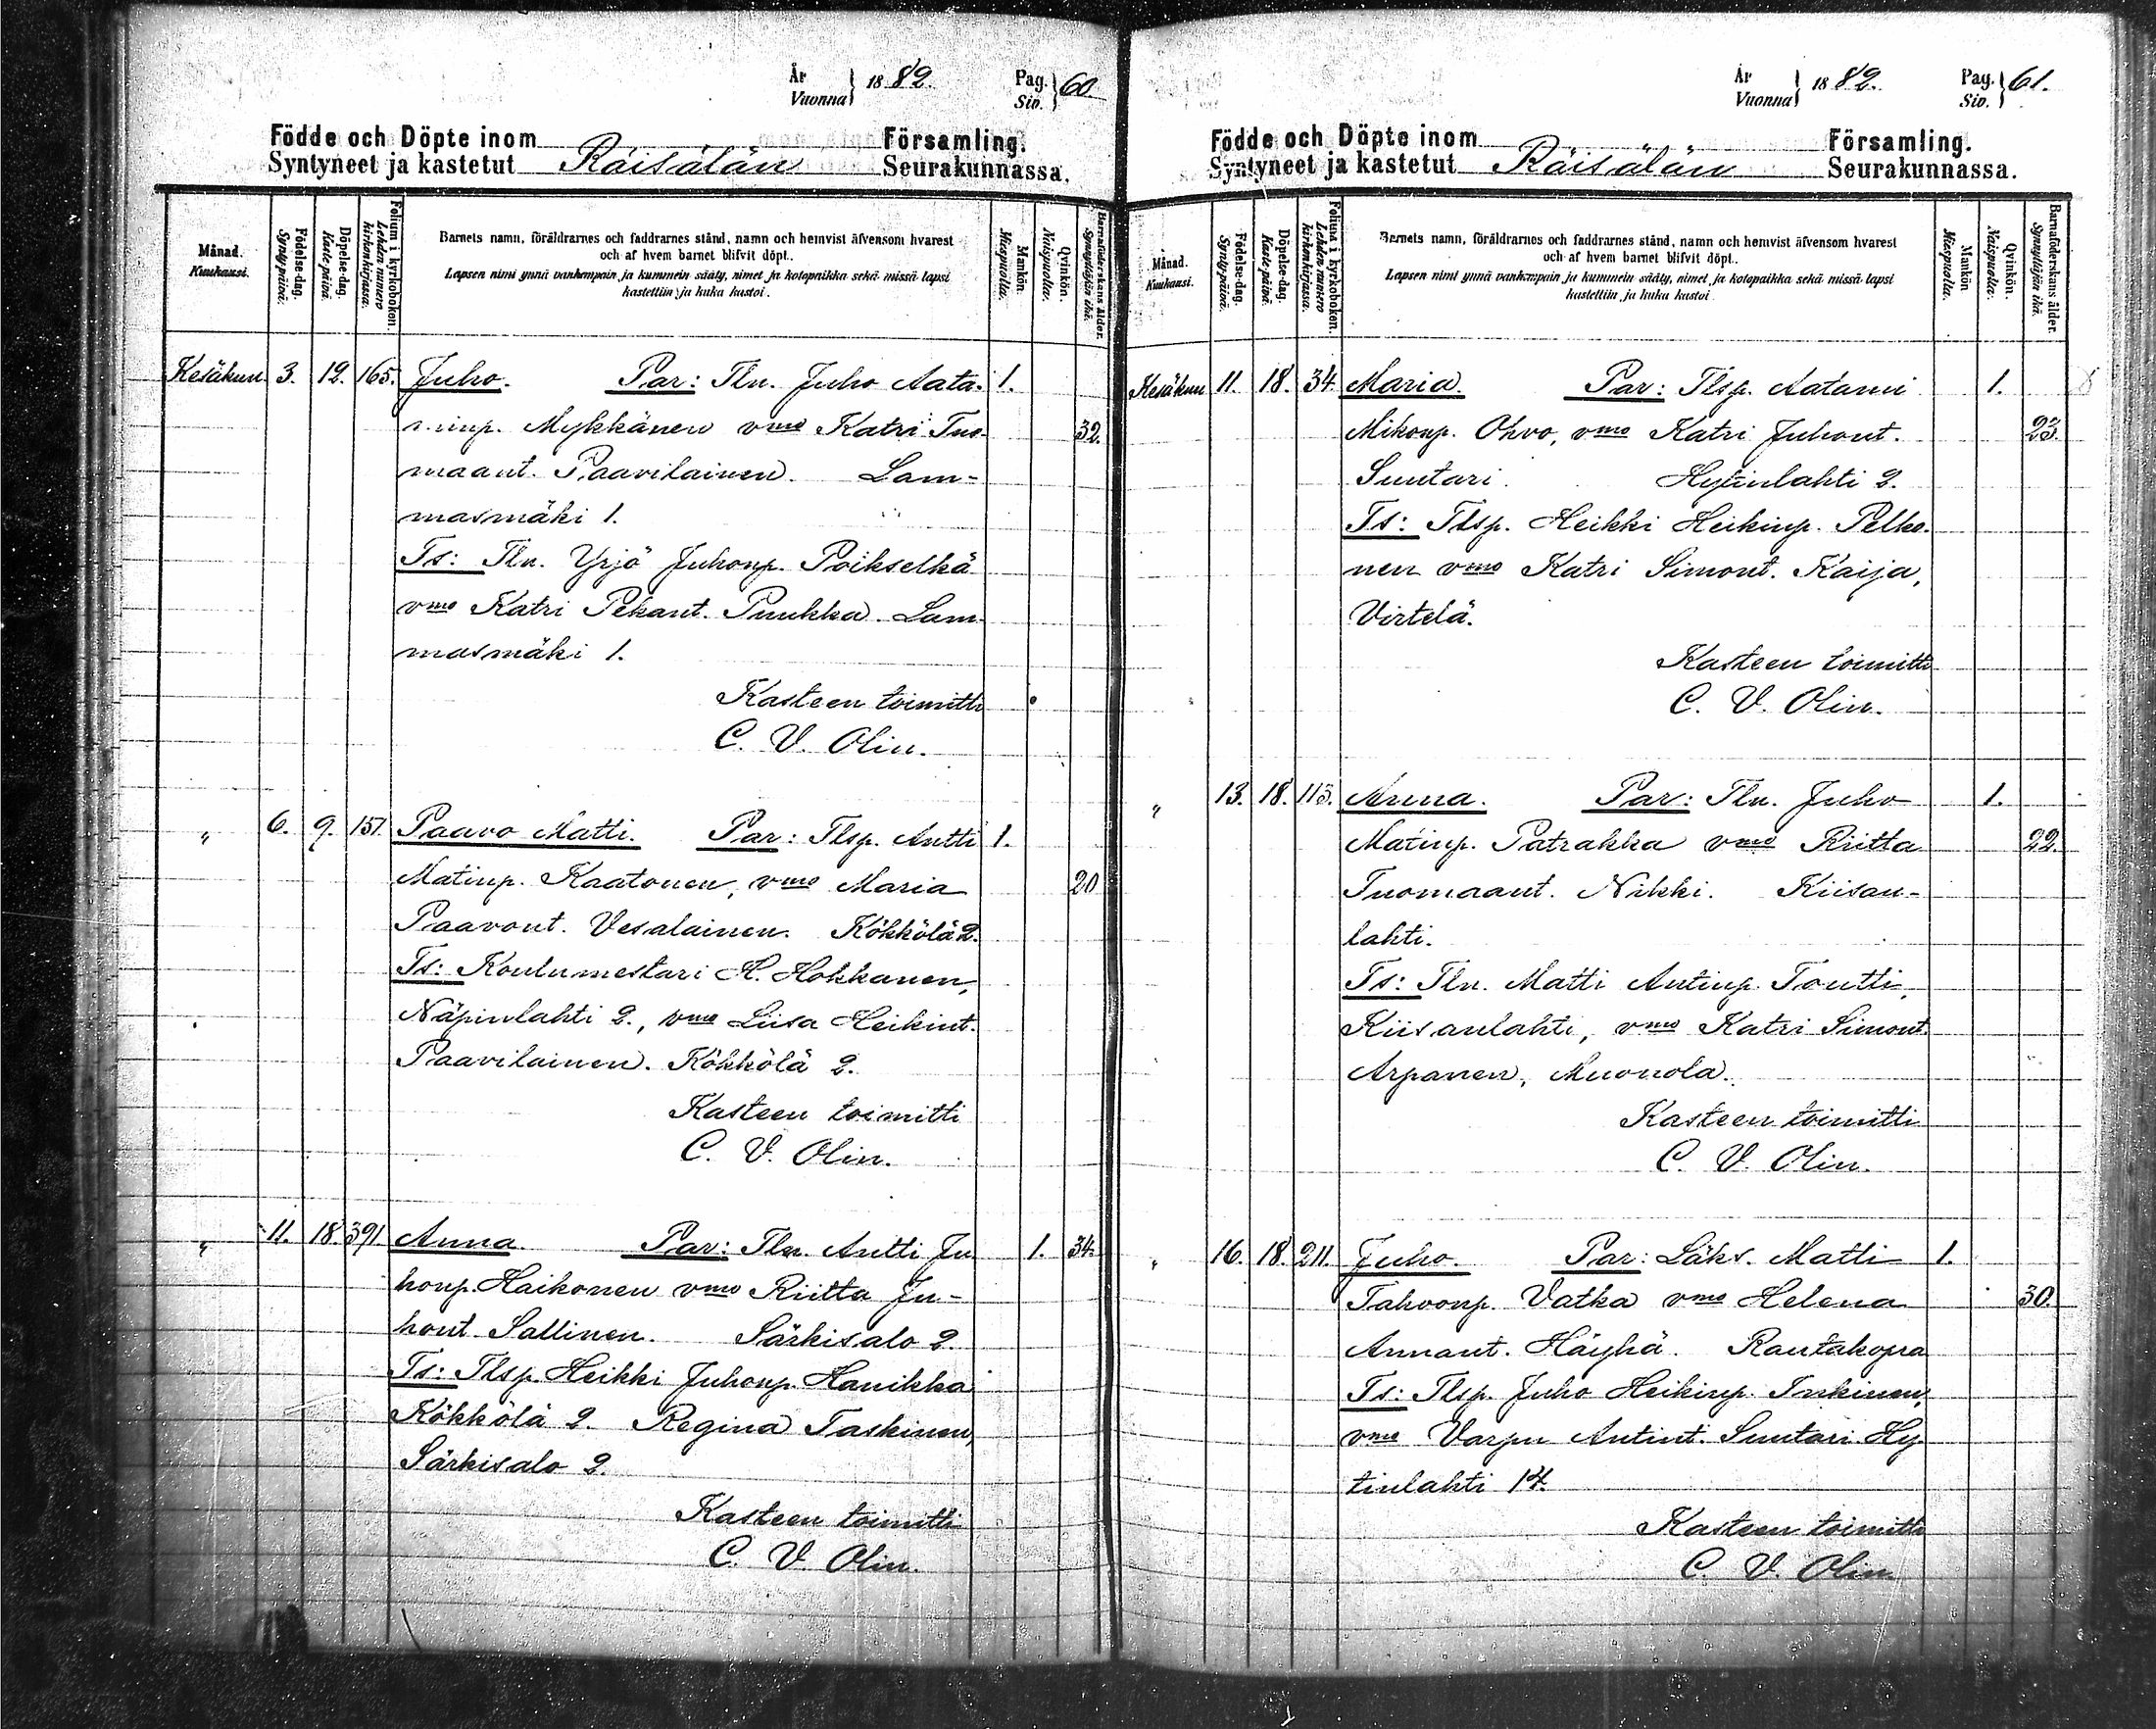 År
Vuonna } 1882.
Pag.
Siv. } 60.
Födde och Döpte inom Församling.
Syntyneet ja kastetut Räisälän Seurakunnassa.
Månad.
Kuukausi.
Födelse-dag.
Synty-päivä.
Döpelse-dag.
Kaste-päivä.
Folium i kyrkoboken.
Lehden numero kirkonkirjassa.
Barnets namn, föräldrarnes och faddrarnes stånd, namn och hemvist äfvensom hvarest
och af hvem barnet blifvit döpt.
Lapsen nimi ynnä vanhempain ja kummein sääty, nimet ja kotopaikka sekä missä lapsi
kastettiin ja kuka kastoi.
Mankön.
Miespuolta.
Qvinkön.
Naispuolta.
Barnaföderskans ålder.
Synnyttäjän ikä.
Kesäkun 3. 12. 165. Juho. Par: Tln. Juho Aata- 1.
minp. Mykkänen vmo Katri Tuo- 32.
maant. Paavilainen. Lam-
masmäki 1.
Ts: Tln. Yrjö Juhonp. Poikselkä
vmo Katri Pekant. Puukka Lam-
masmäki 1.
Kasteen toimitti
C. V. Olin.
" 6. 9. 157. Paavo Matti. Par: Tlsp. Antti 1.
Matinp. Kaatonen, vmo Maria 20
Paavont. Vesalainen. Kökkölä 2.
Ts: Koulumestari H. Hokkanen,
Näpinlahti 2., vmo Liisa Heikint.
Paavilainen. Kökkölä 2.
Kasteen toimitti
C. V. Olin.
" 11. 18. 391. Anna. Par: Tln. Antti Ju 1. 34.
honp. Haikonen vmo Riitta Ju-
hont. Sallinen. Särkisalo 2.
Ts: Tlsp. Heikki Juhonp. Hanikka
Kökkölä 2. Regina Taskinen,
Särkisalo 2.
Kasteen toimitti
C. V. Olin.
År
Vuonna } 1882.
Pag.
Siv. } 61.
Födde och Döpte inom Församling.
Syntyneet ja kastetut Räisälän Seurakunnassa.
Månad.
Kuukausi.
Födelse-dag.
Synty-päivä.
Döpelse-dag.
Kaste-päivä.
Folium i kyrkoboken.
Lehden numero kirkonkirjassa.
Barnets namn, föräldrarnes och faddrarnes stånd, namn och hemvist äfvensom hvarest
och af hvem barnet blifvit döpt.
Lapsen nimi ynnä vanhempain ja kummein sääty, nimet ja kotopaikka sekä missä lapsi
kastettiin ja kuka kastoi.
Mankön
Miespuolta.
Qvinkön.
Naispuolta.
Barnaföderskans ålder.
Synnyttäjän ikä.
Kesäkun 11. 18. 34. Maria. Par: Tlsp. Aatami 1.
Mikonp. Ohvo, vmo Katri Juhont. 23.
Suutari. Hytinlahti 2.
Ts: Tlsp. Heikki Heikinp. Pelko-
nen vmo Katri Simont. Kaija,
Virtelä.
Kasteen toimitti
C. V. Olin.
" 13. 18. 113. Anna. Par: Tln. Juho 1.
Matinp. Patrakka vmo Riitta 22.
Tuomaant. Nikki. Kiisan-
lahti.
Ts: Tln. Matti Antinp. Tontti,
Kiisanlahti, vmo Katri Simont.
Arpanen, Muonola.
Kasteen toimitti
C. V. Olin.
" 16. 18. 211. Juho. Par: Läks. Matti 1.
Tahvonp. Vatka vmo Helena 30.
Annant. Häyhä. Rautakopra
Ts: Tlsp. Juho Heikinp. Inkinen,
vmo Varpu Antint. Suutari Hy-
tinlahti 14.
Kasteen toimitti
C. V. Olin